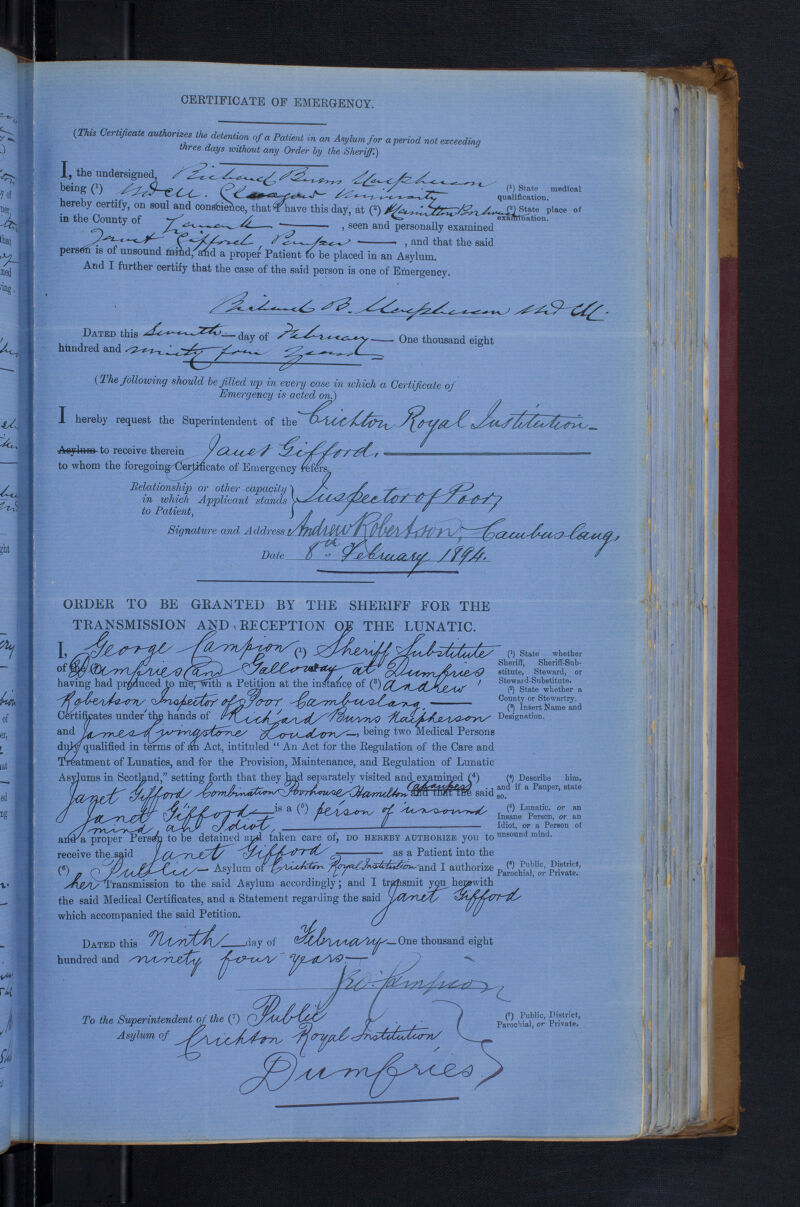 CERTIFICATE OF EMERGENCY.
(This Certificate authorizes the detention of a Patient in an Asylum for a period not exceeding
three days without any Order by the Sheriff.)
I, the undersigned, Richard Burns Macpherson
being (¹) M.B. C.M. Glasgow University
(¹) State medical
qualification.
hereby certify, on soul and conscience, that I have this day, at (²) Hamilton Poorhouse
(²) State place of
examination.
in the County of Lanark, seen and personally examined
Janet Gifford, Pauper, and that the said
person is of unsound mind, and a proper Patient to be placed in an Asylum.
And I further certify that the case of the said person is one of Emergency.
Richard B. Macpherson M.B. C.M.
DATED this Seventh day of February One thousand eight
hundred and ninety four years
(The following should be filled up in every case in which a Certificate of
Emergency is acted on.)
I hereby request the Superintendent of the Crichton Royal Institution
Asylum to receive therein Janet Gifford,
to whom the foregoing Certificate of Emergency refers,
Relationship or other capacity
in which Applicant stands
to Patient,
Inspector of Poor,
Signature and Address Andrew Robertson, Cambuslang,
Date 8th February 1894.
ORDER TO BE GRANTED BY THE SHERIFF FOR THE
TRANSMISSION AND RECEPTION OF THE LUNATIC.
I, George Campion (¹) Sheriff Substitute
of the (²) Dumfries and Galloway at Dumfries
having had produced to me, with a Petition at the instance of (³) Andrew
Robertson Inspector of Poor, Cambuslang,
Certificates under the hands of Richard Burns Macpherson
and James Livingstone Loudon, being two Medical Persons
duly qualified in terms of an Act, intituled "An Act for the Regulation of the Care and
Treatment of Lunatics, and for the Provision, Maintenance, and Regulation of Lunatic
Asylums in Scotland," setting forth that they had separately visited and examined (⁴)
Janet Gifford Combination Poorhouse Hamilton (a pauper) and that the said
Janet Gifford is a (⁵) person of unsound
mind, an Idiot,
and a proper Person to be detained and taken care of, DO HEREBY AUTHORIZE YOU to
receive the said Janet Gifford as a Patient into the
(⁶) Public Asylum of Crichton Royal Institution and I authorize
her Transmission to the said Asylum accordingly; and I transmit you herewith
the said Medical Certificates, and a Statement regarding the said Janet Gifford
which accompanied the said Petition.
(¹) State whether
Sheriff, Sheriff-Sub-
stitute, Steward, or
Steward-Substitute.
(²) State whether a
County or Stewartry.
(³) Insert Name and
Designation.
(⁴) Describe him,
and if a Pauper, state
so.
(⁵) Lunatic, or an
Insane Person, or an
Idiot, or a Person of
unsound mind.
(⁶) Public, District,
Parochial, or Private.
DATED this Ninth day of February One thousand eight
hundred and ninety four years
Geo. Campion
To the Superintendent of the (⁷) Public
Asylum of Crichton Royal Institution
Dumfries
(⁷) Public, District,
Parochial, or Private.